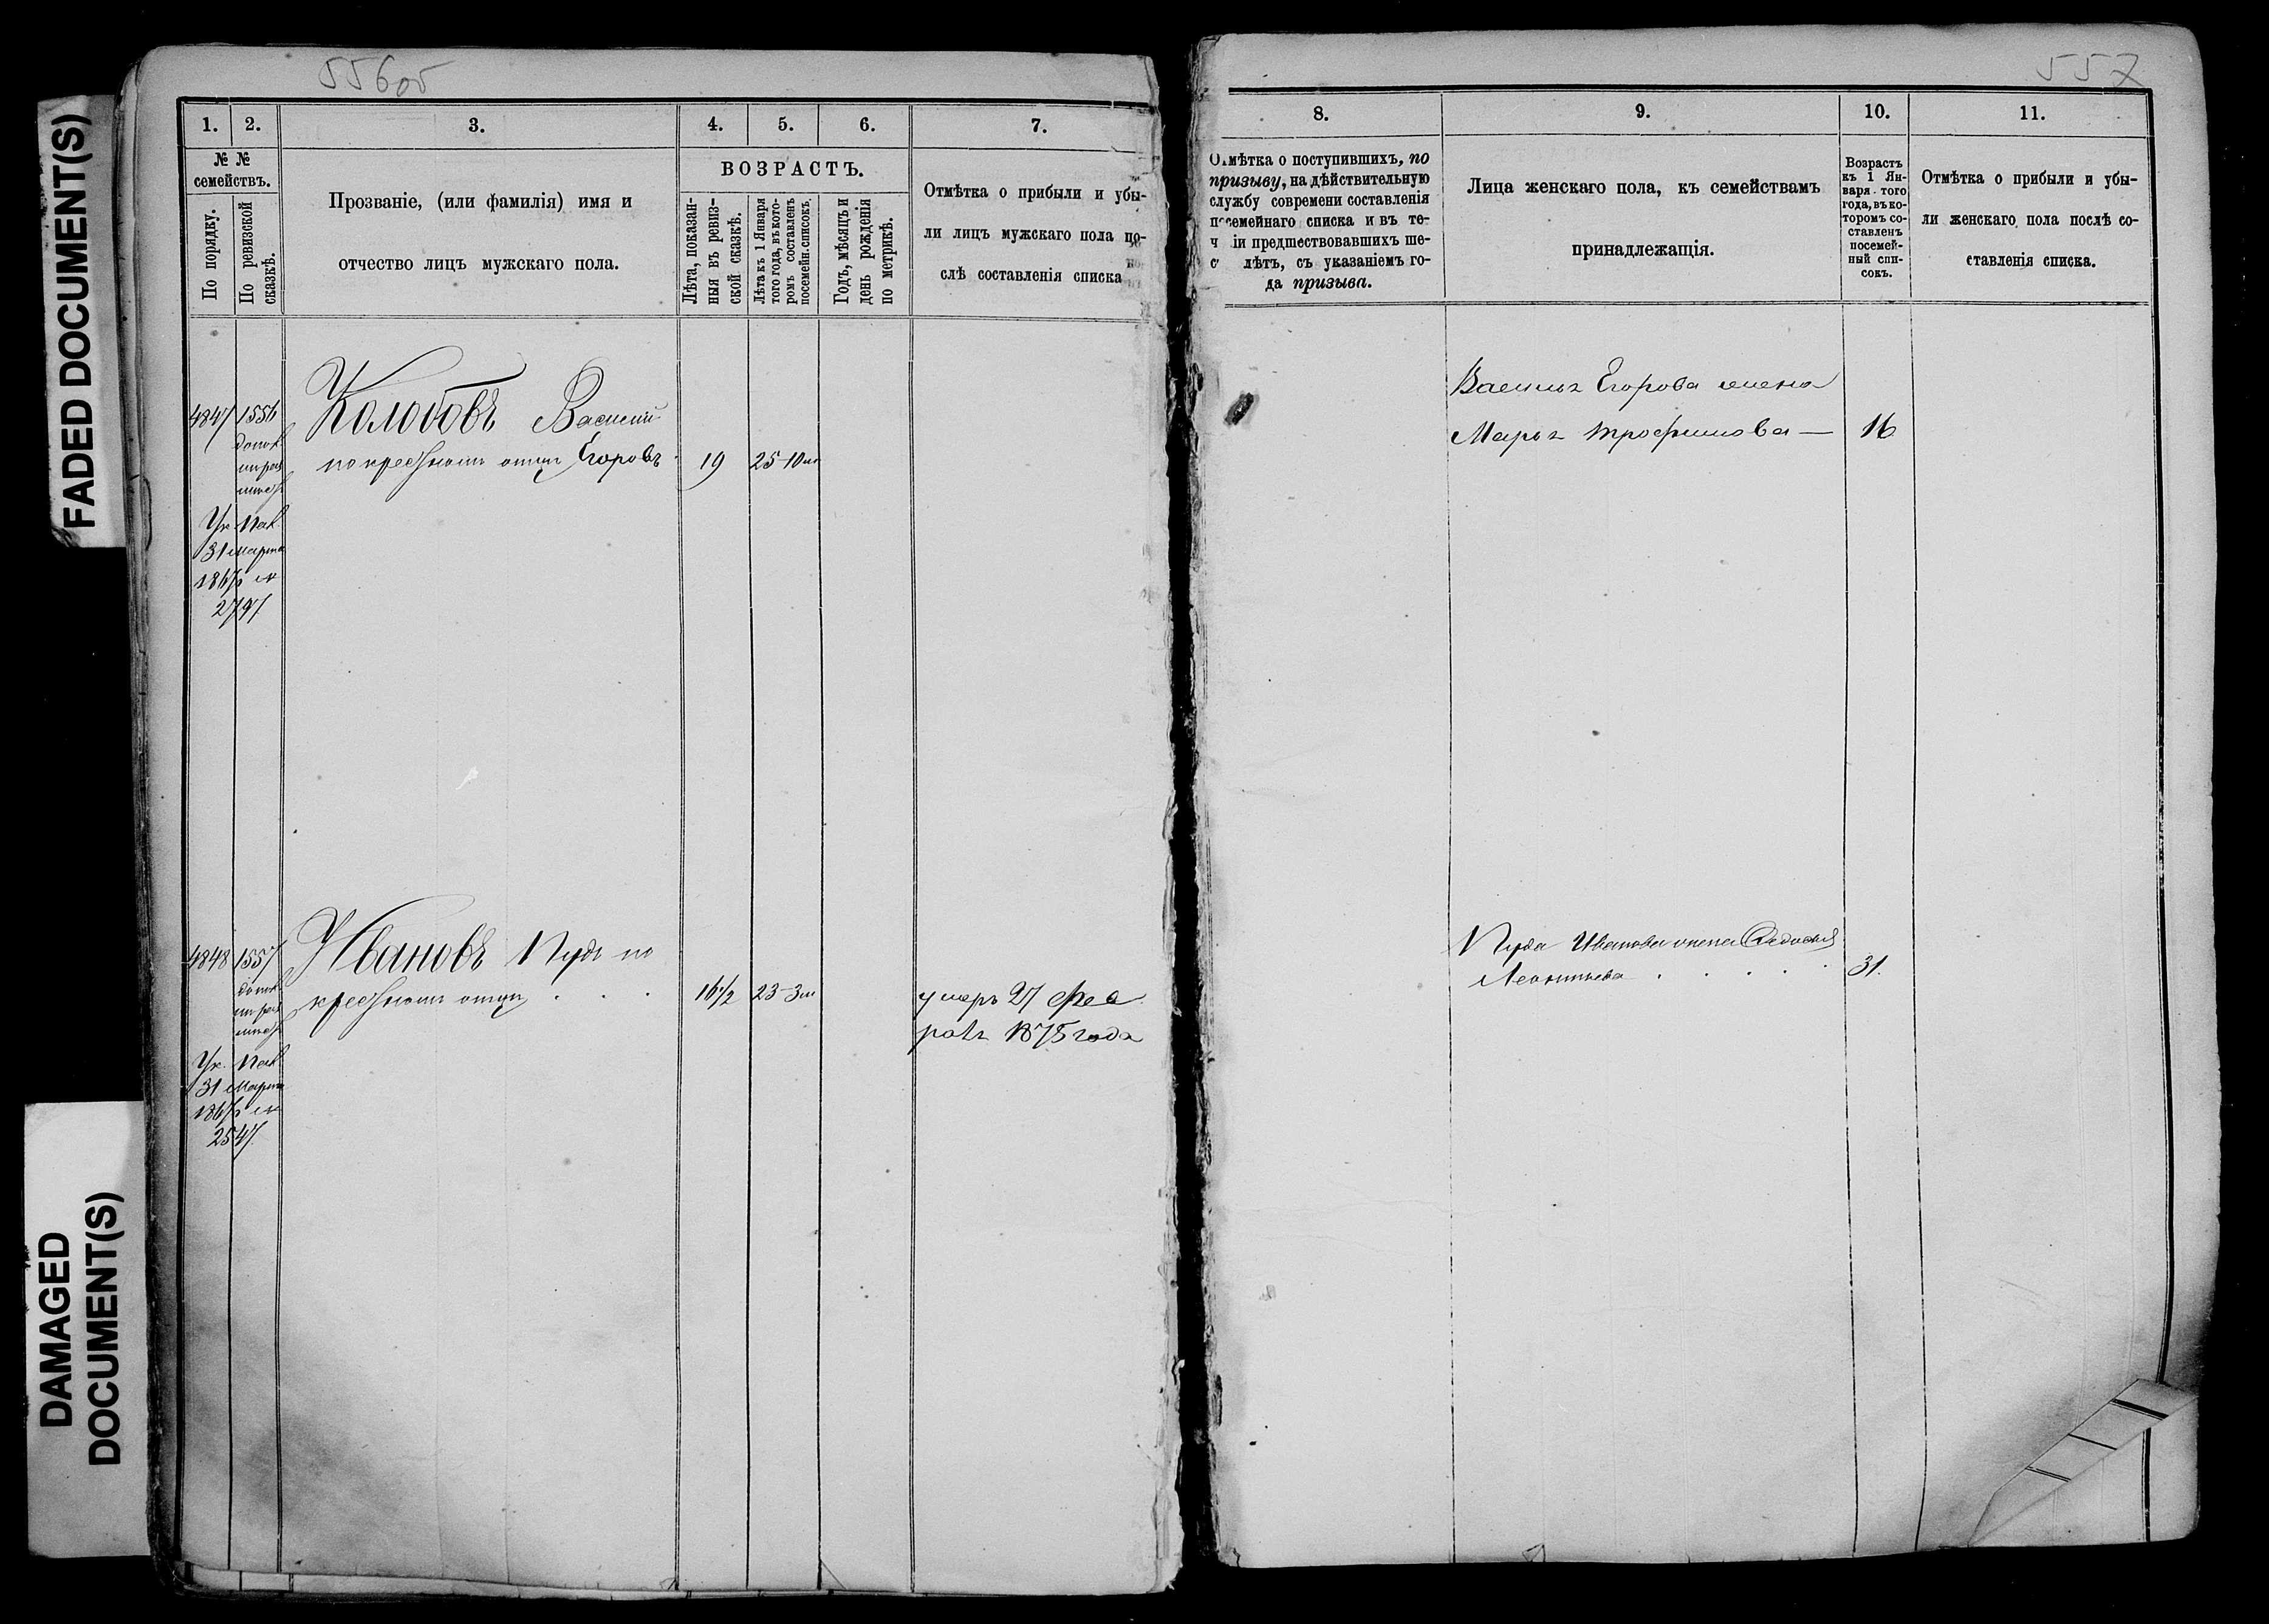 FADED DOCUMENT(S)
DAMAGED
DOCUMENT(S)
556об
1. 2. 3. 4. 5. 6. 7.
№ №
семействъ.
По порядку.
По ревизской
сказкѣ.
Прозваніе, (или фамилія) имя и
отчество лицъ мужскаго пола.
ВОЗРАСТЪ.
Лѣта, показан-
ныя въ ревиз-
ской сказкѣ.
Лѣта къ 1 Января
того года, въ кото-
ромъ составленъ
посемейн. списокъ.
Годъ, мѣсяцъ и
день рожденія
по метрикѣ.
Отмѣтка о прибыли и убы-
ли лицъ мужскаго пола по-
слѣ составленія списка
4847 1556 Колобовъ Василій
по крестному отцу Егоровъ 19 25-10м
Ук.
31 Марта
1867 №
2797
4848 1557 Ивановъ Пудъ по
крестному отцу . . . 16½ 23-3м
умеръ 27 Фев
раля 1875 года
Ук.
31 Марта
1867 №
2547.
557
8. 9. 10. 11.
Отмѣтка о поступившихъ, по
призыву, на дѣйствительную
службу современи составленія
посемейнаго списка и въ те-
ченіи предшествовавшихъ ше-
лѣтъ, съ указаніемъ го-
да призыва.
Лица женскаго пола, къ семействамъ
принадлежащія.
Возрастъ
къ 1 Ян-
варя того
года, въ ко-
торомъ со-
ставленъ
посемей-
ный спи-
сокъ.
Отмѣтка о прибыли и убы-
ли женскаго пола послѣ со-
ставленія списка.
Василья Егорова жена
Марья Трофимова — 16
Пуда Иванова жена Федосья
Леонтьева . . . . . 31.